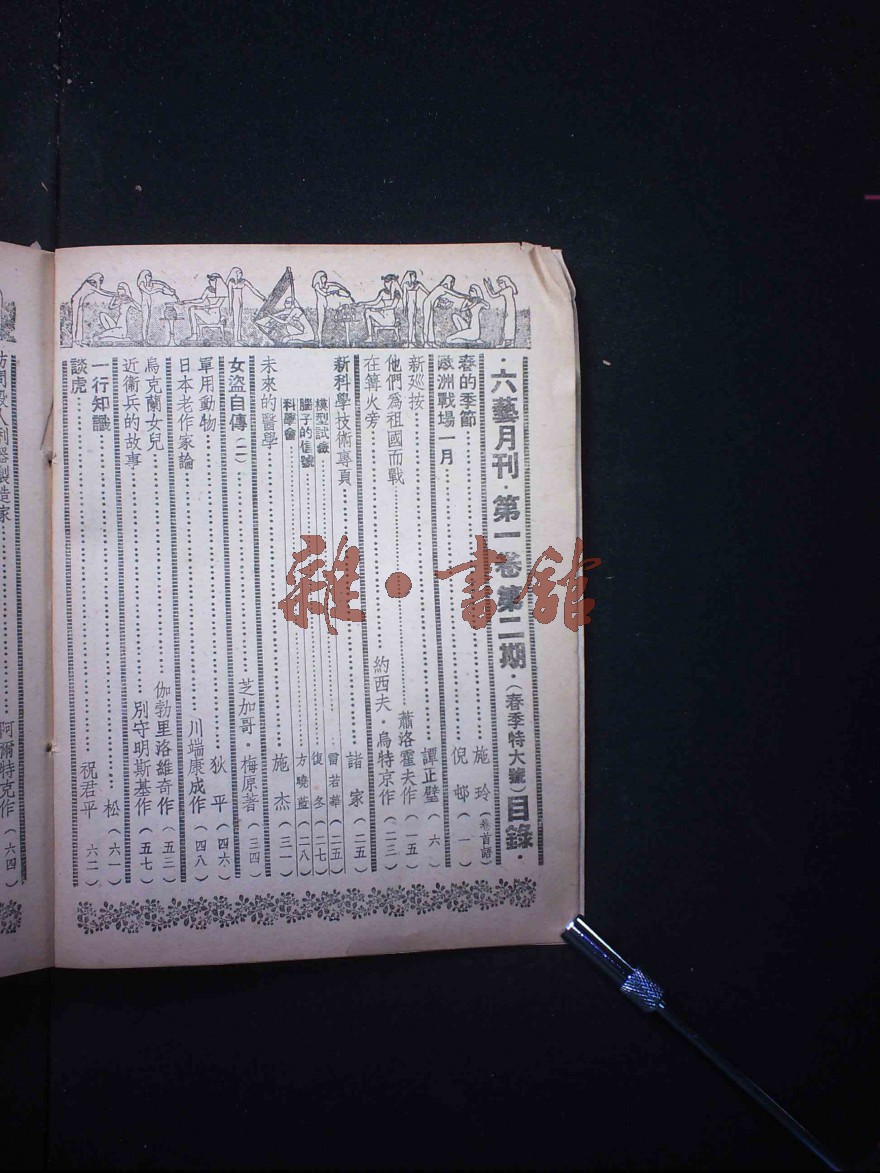 ·六藝月刊·第一卷第二期·(春季特大號)目錄·
春的季節……施玲(卷首語)
歐洲戰場一月……倪邨(一)
新巡按……譚正璧(六)
他們爲祖國而戰……蕭洛霍夫作(一五)
在篝火旁……約西夫·烏特京作(二三)
新科學技術專頁……諸家(二五)
模型試驗……曾若華(二五)
腦子的信號……復冬(二七)
科學會……方曉藍(二八)
未來的醫學……施杰(三一)
女盜自傳(二)……芝加哥·梅原著(三四)
軍用動物……狄平(四六)
日本老作家論……川端康成作(四八)
烏克蘭女兒……伽勃里洛維奇作(五三)
近衛兵的故事……別守明斯基作(五七)
一行知識……松(六一)
談虎……祝君平(六二)
訪問殺人利器製造家……阿爾特克作(六四)
雜·書館